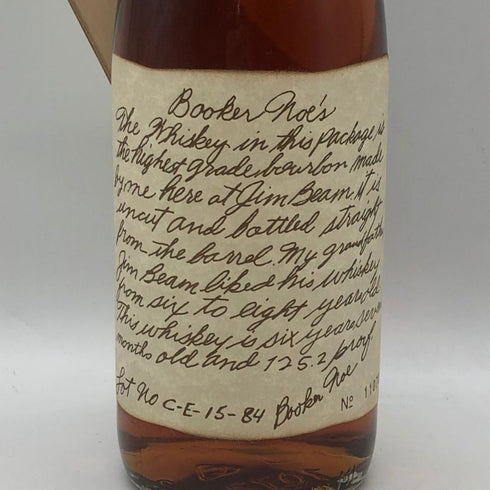 Booker Noe's
The Whiskey in this package is
the highest grade bourbon made
by me here at Jim Beam. It is
uncut and bottled straight
from the barrel. My grandfather
Jim Beam liked his whiskey
from six to eight years old
This whiskey is six years seven
months old and 125.2 proof.
Booker Noe
Lot No C-E-15-84
No